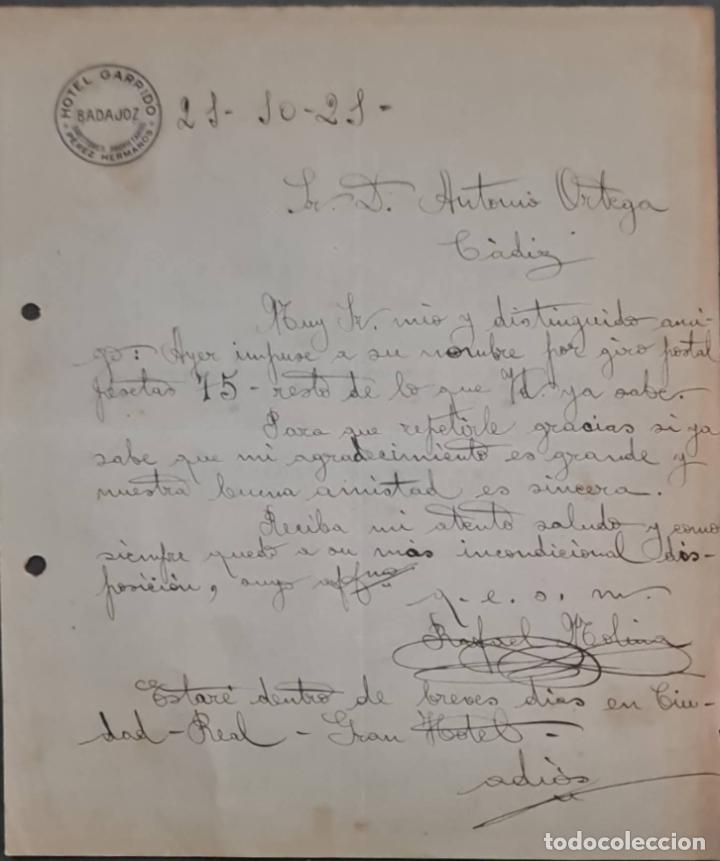 HOTEL GARRIDO
BADAJOZ
PEREZ HERMANOS
21-10-21-
Sr. D. Antonio Ortega
Càdiz
Muy Sr. mio y distinguido ami-
go: Ayer impuse a su nombre por giro postal
pesetas 75- resto de lo que Vd. ya sabe.
Para que repetirle gracias si ya
sabe que mi agradecimiento es grande y
nuestra buena amistad es sincera.
Reciba mi atento saludo y como
siempre quedo a su màs incondicional dis-
posición,
q. e. s. m.
Rafael Molina
Estaré dentro de breves dias en Ciu-
dad-Real- Gran Hotel-
adiòs
todocoleccion